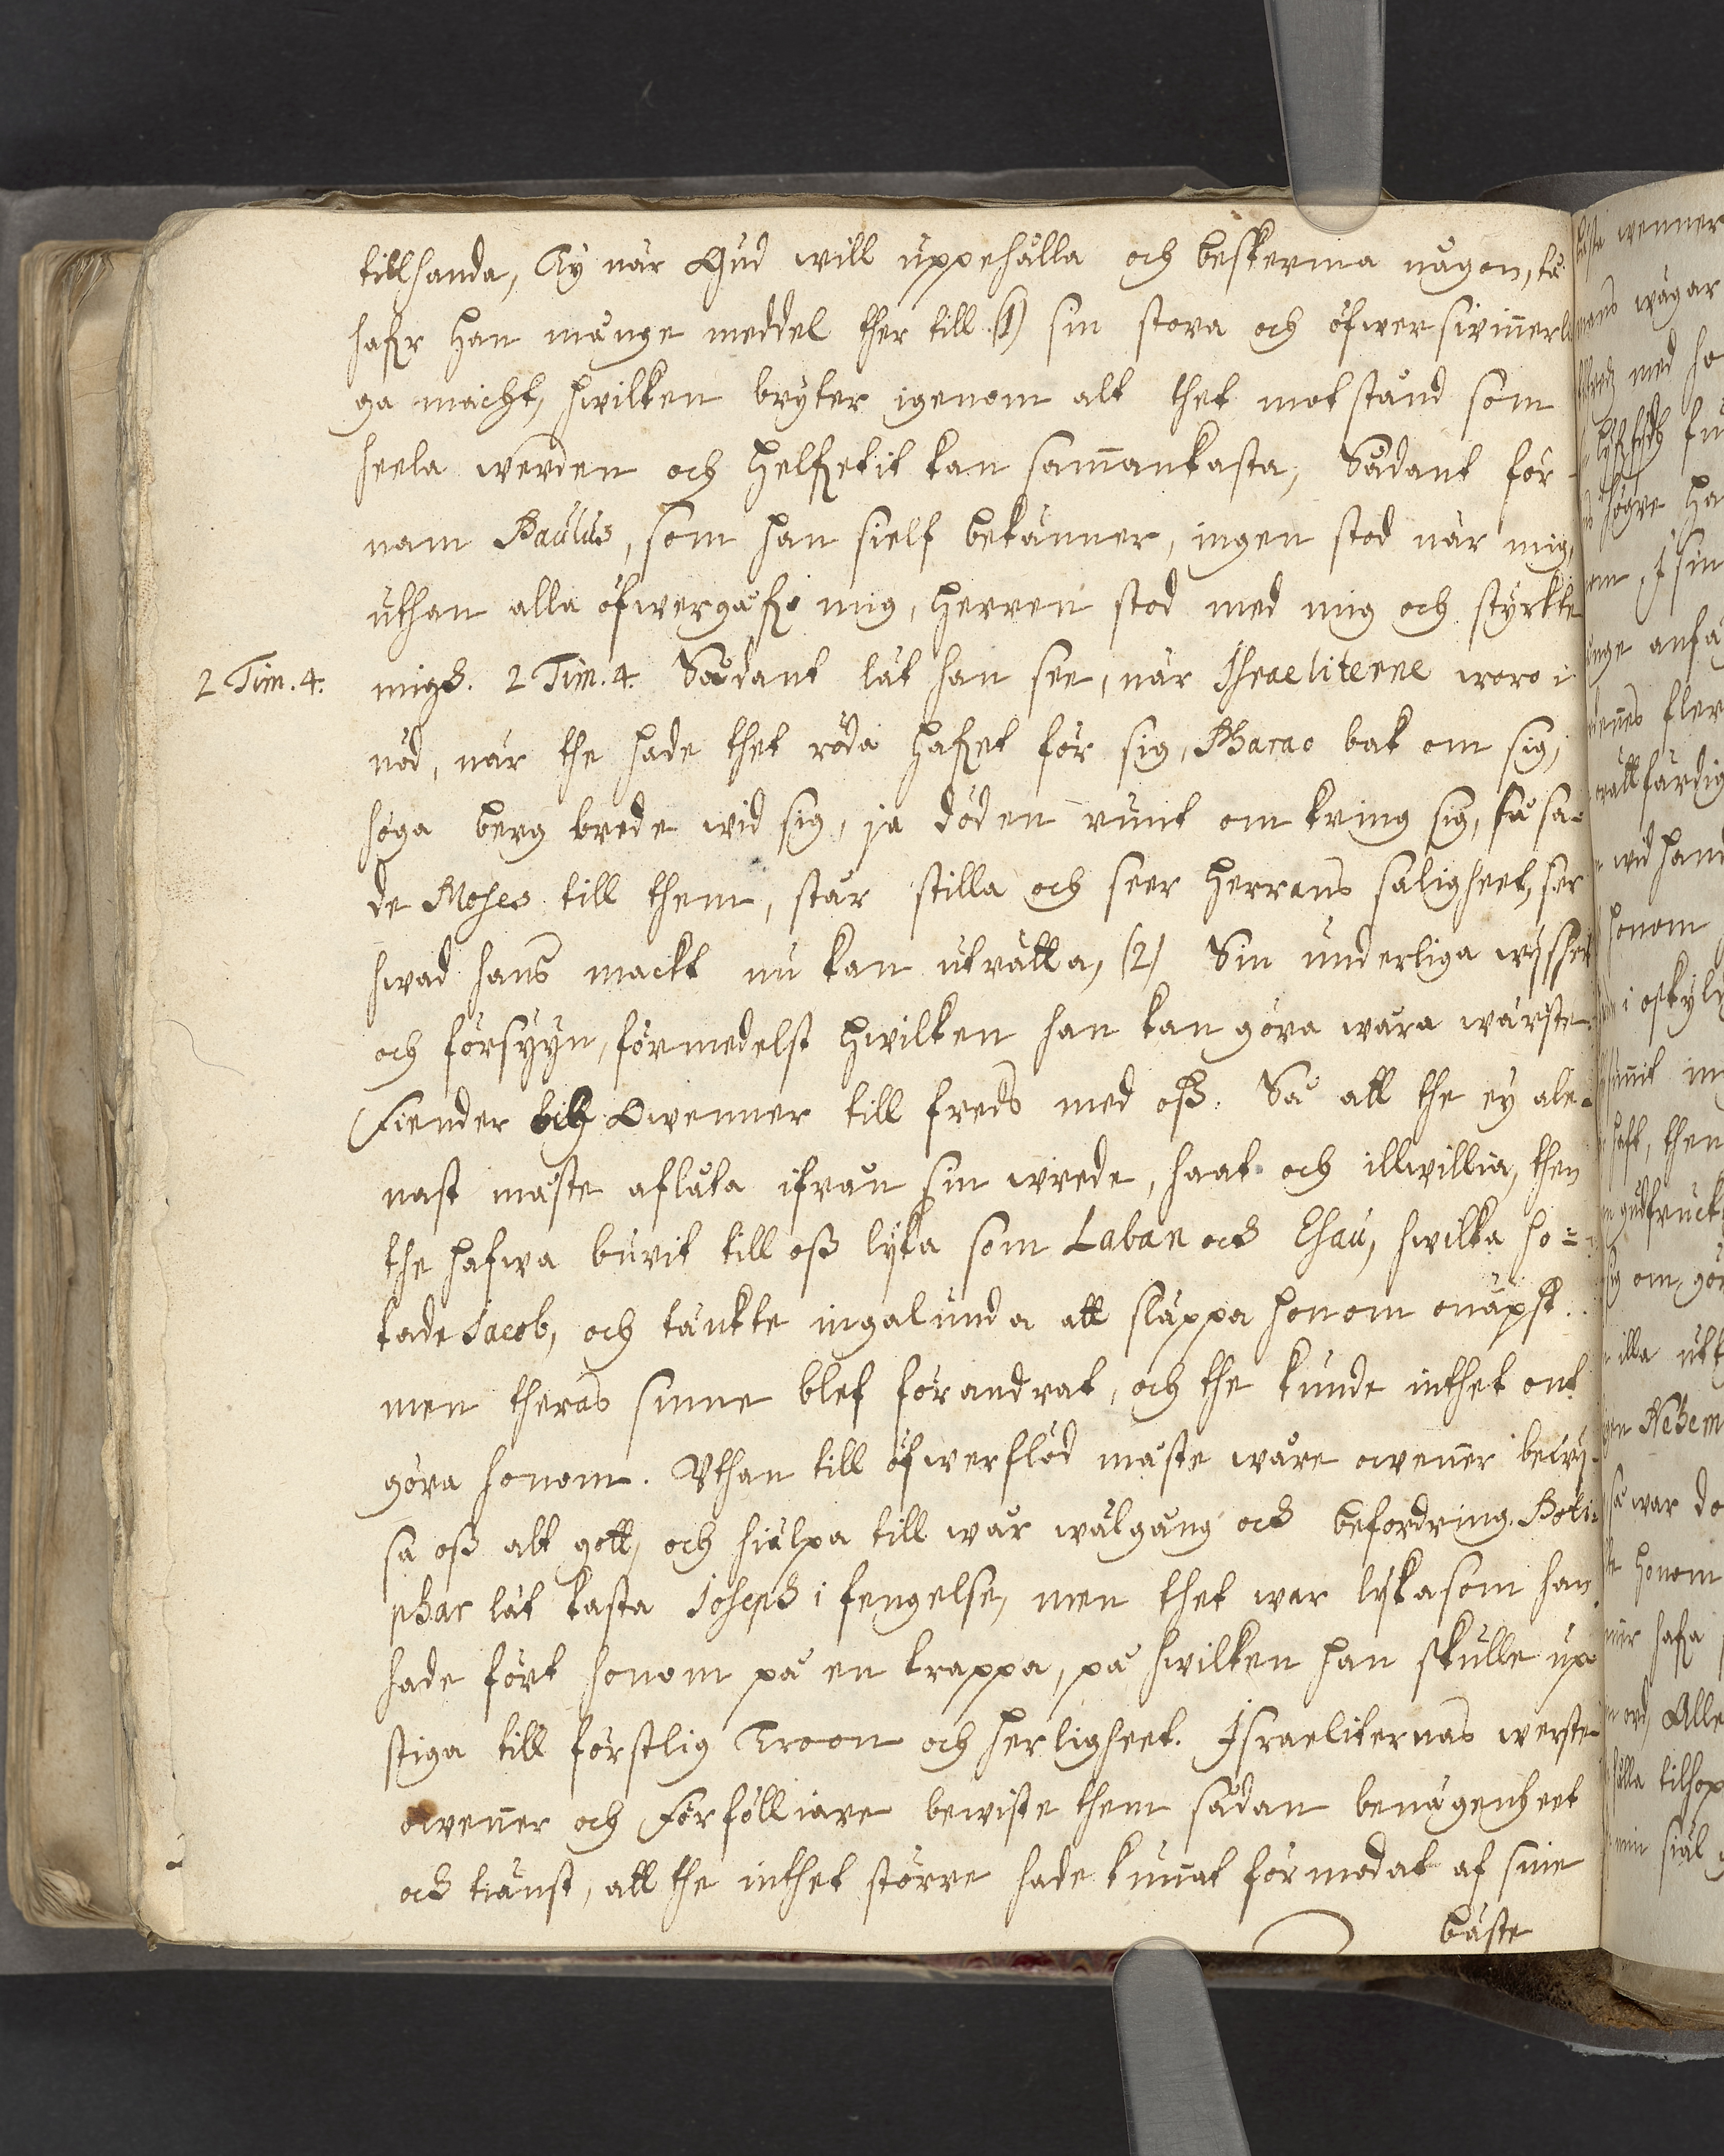 tillhanda, Ty när Gud will uppehålla och beskerma någon, tå
hafr han månge meddel ther till (1) sin stora och öfwerswinnerli
ga macht, hwilken bryter igenom alt thet motstånd som
heela werden och helfvetit kan sammankasta, Sådant för-
nam Paulus, som han sielf bekänner, ingen stod när mig,
uthan alla öfwergåfvo mig, herren stod med mig och styrkte
2 Tim. 4. migh. 2 Tim. 4. Sådant lät han see, när Jsraeliterne woro i
nöd, när the hade thet röda hafvet för sig, Pharao bak om sig,
höga berg brede wid sig, ja döden runt om kring sig, så sa-
de Moses till them, står stilla och seer herrans saligheet, ser
hwad hans mackt nu kan uträtta, (2) Sin underliga wissheet
och försyyn, förmedelst hwilken han kan göra wåra wärste
Fiender och Owenner till freds med oss. Så att the ey ale-
nast måste aflåta ifrån sin wrede, haat och illwillia, then
the hafwa burit till oss lyka som Laban och Esau, hwilka ho-
tade Jacob, och tänkte ingalunda att släppa honom onäpst.
men theras sinne blef förandrat, och the kunde inthet ont
göra honom. Vthan till öfwerflöd måste wåre owenner bewij-
sa oss alt gott, och hielpa till wår wälgång och befordring. Poti-
phar lät kasta Joseph i fengelse, men thet war lyka som han
hade fört honom på en trappa, på hwilken han skulle up
stiga till förstlig Troon och herligheet. Jsraeliternas werste
owenner och Förfölliare bewiste them sådan benägenheet
och tiänst, att the inthet större hade kunnat förmodat af sine
bäste